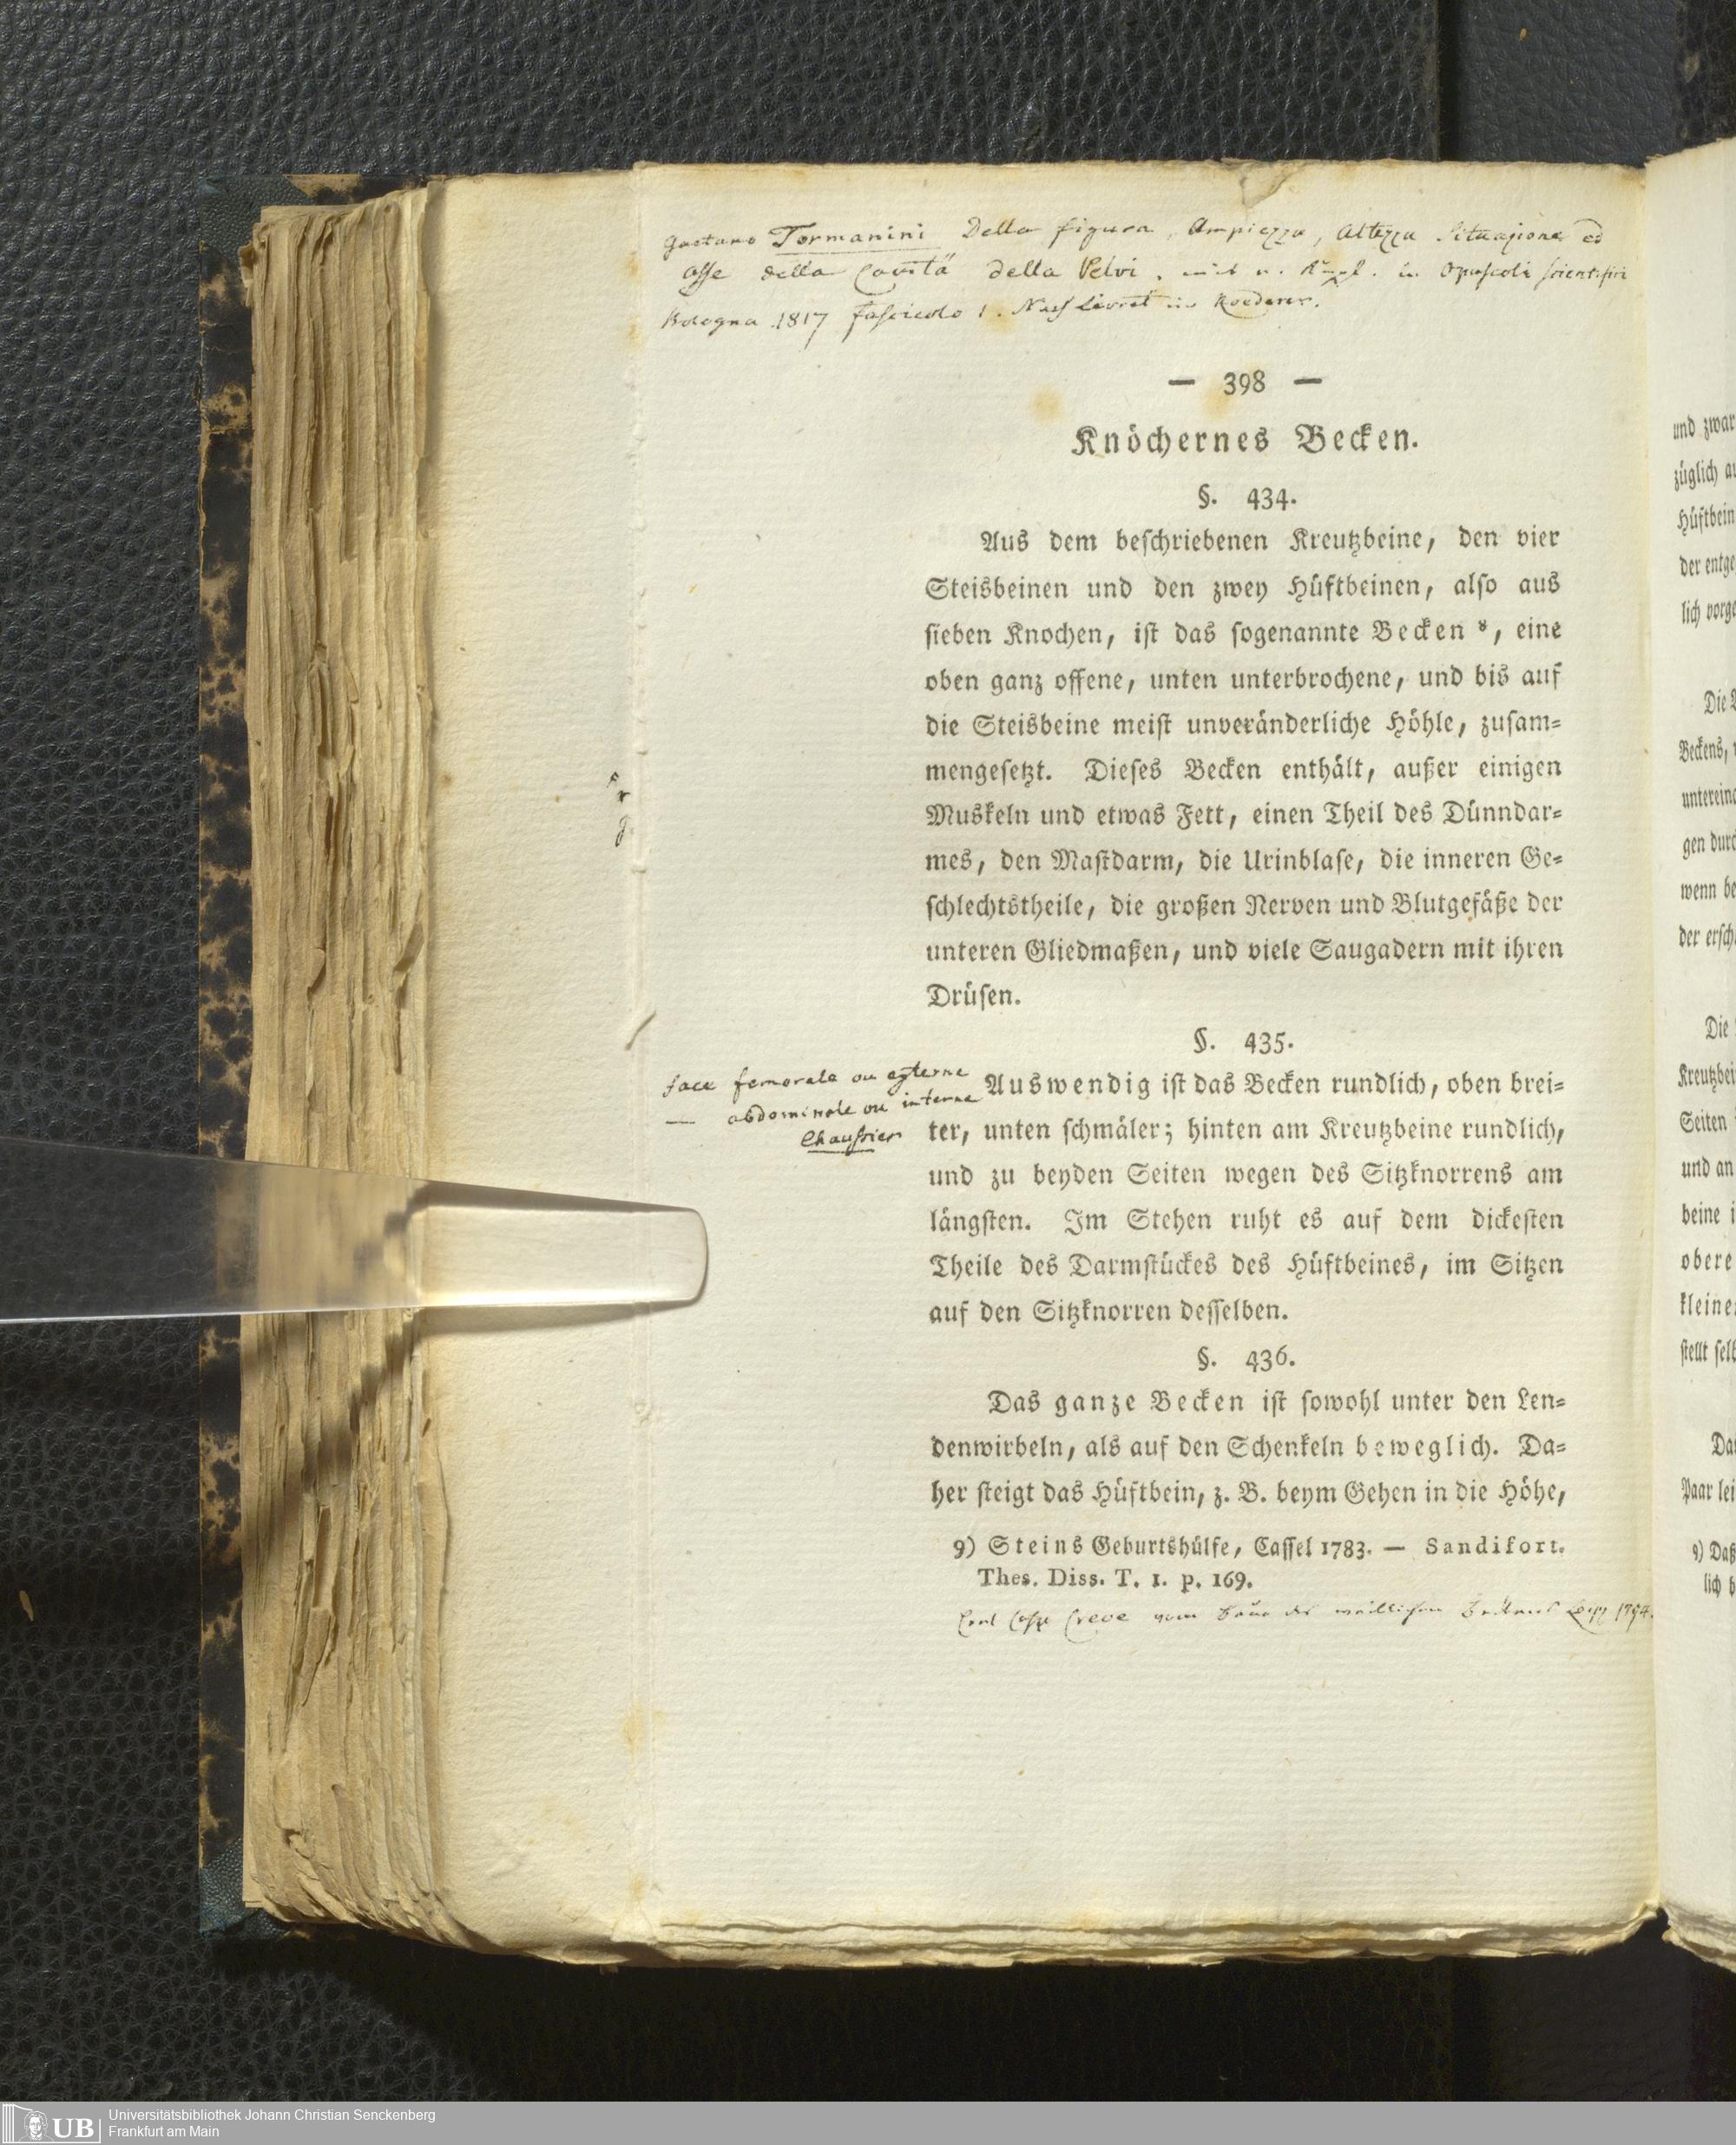 Gaetano Tormanini Della figura, Ampiezza, Altezza Situazione ed
asse della Cavità della Pelvi. mit u. in Opuscoli scientifici
Bologna 1817 fascicolo 1. Nach Levret in Roederer.
— 398 —
Knöchernes Becken.
§. 434.
Aus dem beſchriebenen Kreutzbeine, den vier
Steisbeinen und den zwey Hüftbeinen, alſo aus
ſieben Knochen, iſt das ſogenannte Becken ⁸, eine
oben ganz offene, unten unterbrochene, und bis auf
die Steisbeine meiſt unveränderliche Höhle, zuſam-
mengeſetzt. Dieſes Becken enthält, außer einigen
Muskeln und etwas Fett, einen Theil des Dünndar-
mes, den Maſtdarm, die Urinblaſe, die inneren Ge-
ſchlechtstheile, die großen Nerven und Blutgefäße der
unteren Gliedmaßen, und viele Saugadern mit ihren
Drüſen.
§. 435.
face femorale ou externe
— abdominale ou interne
Chaussier
Auswendig iſt das Becken rundlich, oben brei-
ter, unten ſchmäler; hinten am Kreutzbeine rundlich,
und zu beyden Seiten wegen des Sitzknorrens am
längſten. Im Stehen ruht es auf dem dickeſten
Theile des Darmſtückes des Hüftbeines, im Sitzen
auf den Sitzknorren deſſelben.
§. 436.
Das ganze Becken iſt ſowohl unter den Len-
denwirbeln, als auf den Schenkeln beweglich. Da-
her ſteigt das Hüftbein, z. B. beym Gehen in die Höhe,
9) Steins Geburtshülfe, Caſſel 1783. — Sandifort.
Thes. Diss. T. 1. p. 169.
Carl Casp Creve vom Baue des weiblichen Beckens Leipz 1794.
und zwar
züglich
Hüftbein
der entge
lich vorge
Die
Beckens,
untereina
gen durc
wenn be
der erſch
Die
Kreutzbei
Seiten
und an
beine i
obere
kleine
ſtellt ſelb
Da
Paar lei
9) Daß
lich b
UB
Universitätsbibliothek Johann Christian Senckenberg
Frankfurt am Main